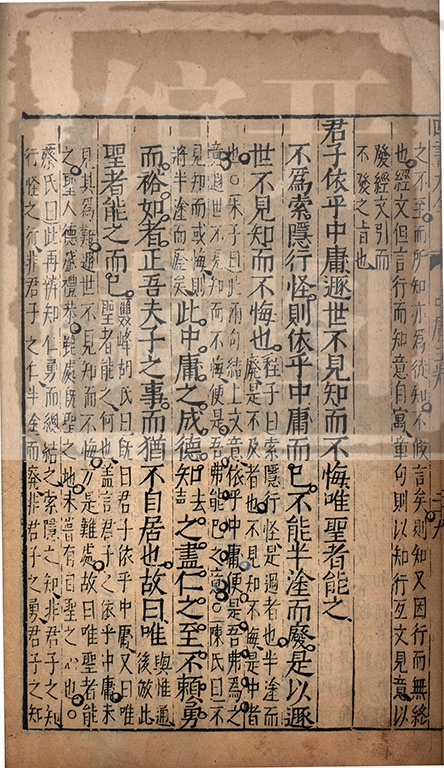 之不至而所知亦為徒知不假言矣則知又因行而無終
也經文但言行而知意自寓章句則以知行互文見意以
發經文引而
不發之旨也
君子依乎中庸遯世不見知而不悔唯聖者能之
不為索隱行怪則依乎中庸而已不能半塗而廢是以遯
世不見知而不悔也
程子曰索隱行怪是過者也半塗而
廢是不及者也不見知不悔是中者
也○朱子曰此兩句結上文意依乎中庸便是吾弗為之
意遯世不見知而不悔便是吾弗能已之意○陳氏曰不
見知而或悔則
將半塗而廢矣
此中庸之成德知去聲之盡仁之至不賴勇
而裕如者正吾夫子之事而猶不自居也故曰唯
與惟通
後倣此
聖者能之而已
雙峰胡氏曰既曰君子依乎中庸又曰唯
聖者能之何也蓋言君子之依乎中庸未
見其為難遯世不見知而不悔方是難處故曰唯聖者能
之聖人德盛禮恭雖處既聖之地未嘗有自聖之心也○
蔡氏曰此再辨知仁勇而總結之索隱之知非君子之知
行怪之行非君子之仁半塗而廢非君子之勇君子之知